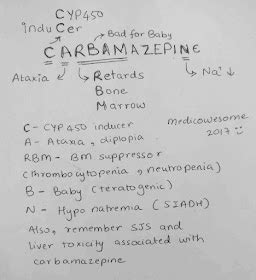 CYP450
induCer
Bad for Baby
CARBAMAZEPINE
Ataxia
Retards
Na⁺ ↓
Bone
Marrow
C - CYP450 inducer
medicowesome
A - Ataxia, diplopia
2017
RBM - BM suppressor
(thrombocytopenia, neutropenia)
B - Baby (teratogenic)
N - Hyponatremia (SIADH)
Also, remember SJS and
liver toxicity associated with
carbamazepine